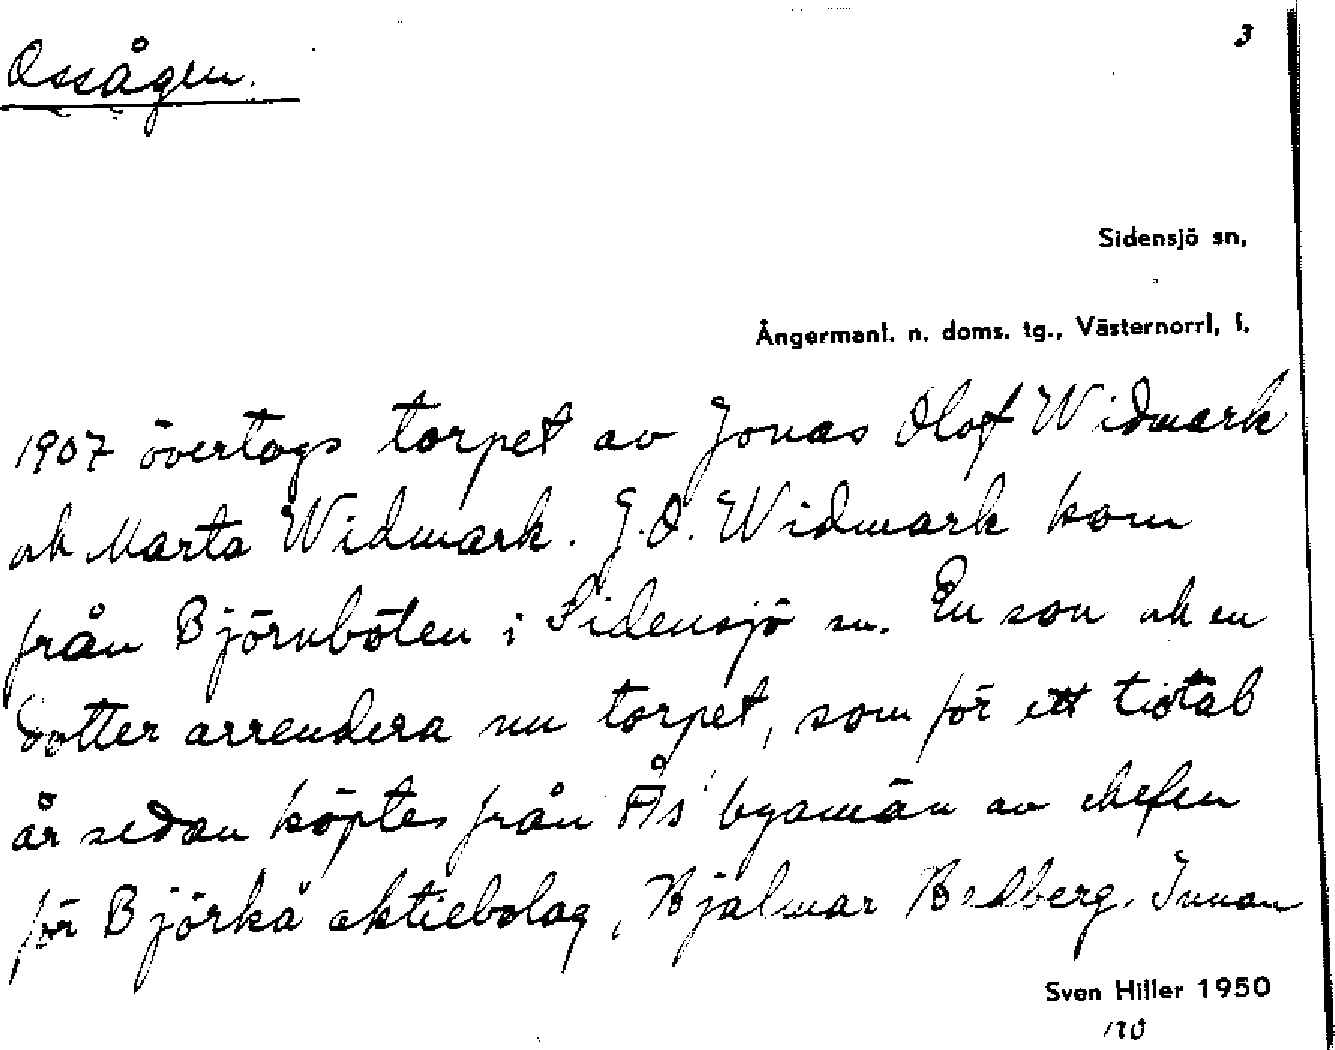 3
Ossågen.
Sidensjö sn,
Ångermanl. n. doms. tg., Västernorrl. l.
1907 övertogs torpet av Jonas Olof Widmark
och Marta Widmark. J.O. Widmark kom
från Björnböten i Sidensjö sn. En son och en
dotter arrendera nu torpet, som för ett tiotal
år sedan köptes från Ås byamän av chefen
för Björkå aktiebolag, Hjalmar Hedberg. Innan
Sven Hiller 1950